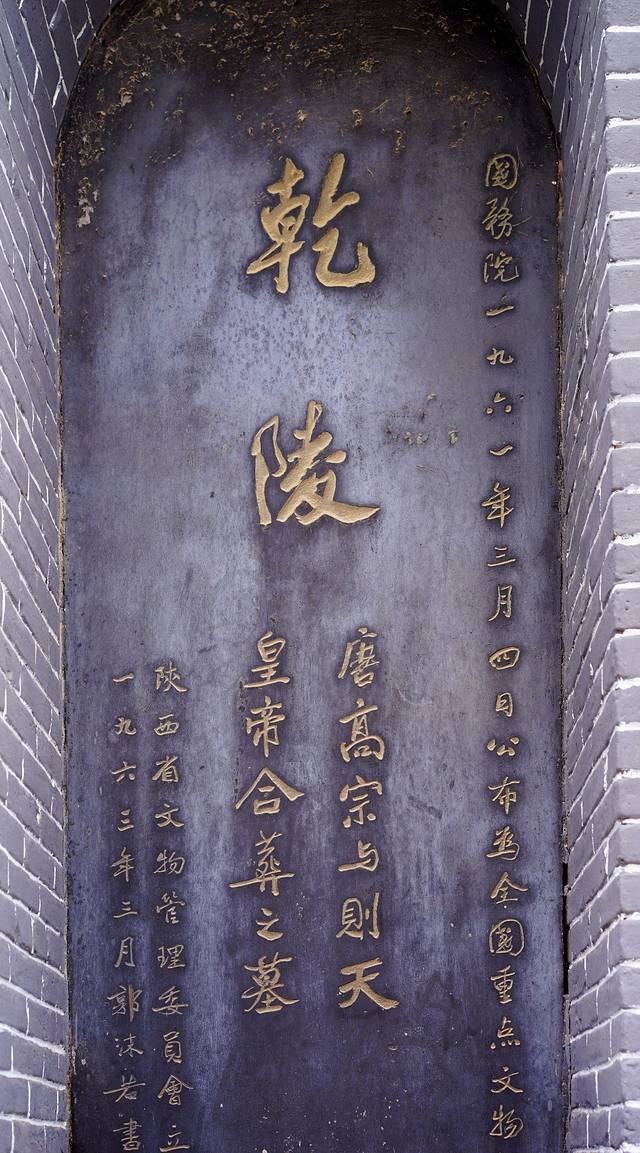 國務院一九六一年三月四日公布為全國重点文物
乾陵
唐高宗与則天
皇帝合葬之墓
陝西省文物管理委員會立
一九六三年三月郭沫若書